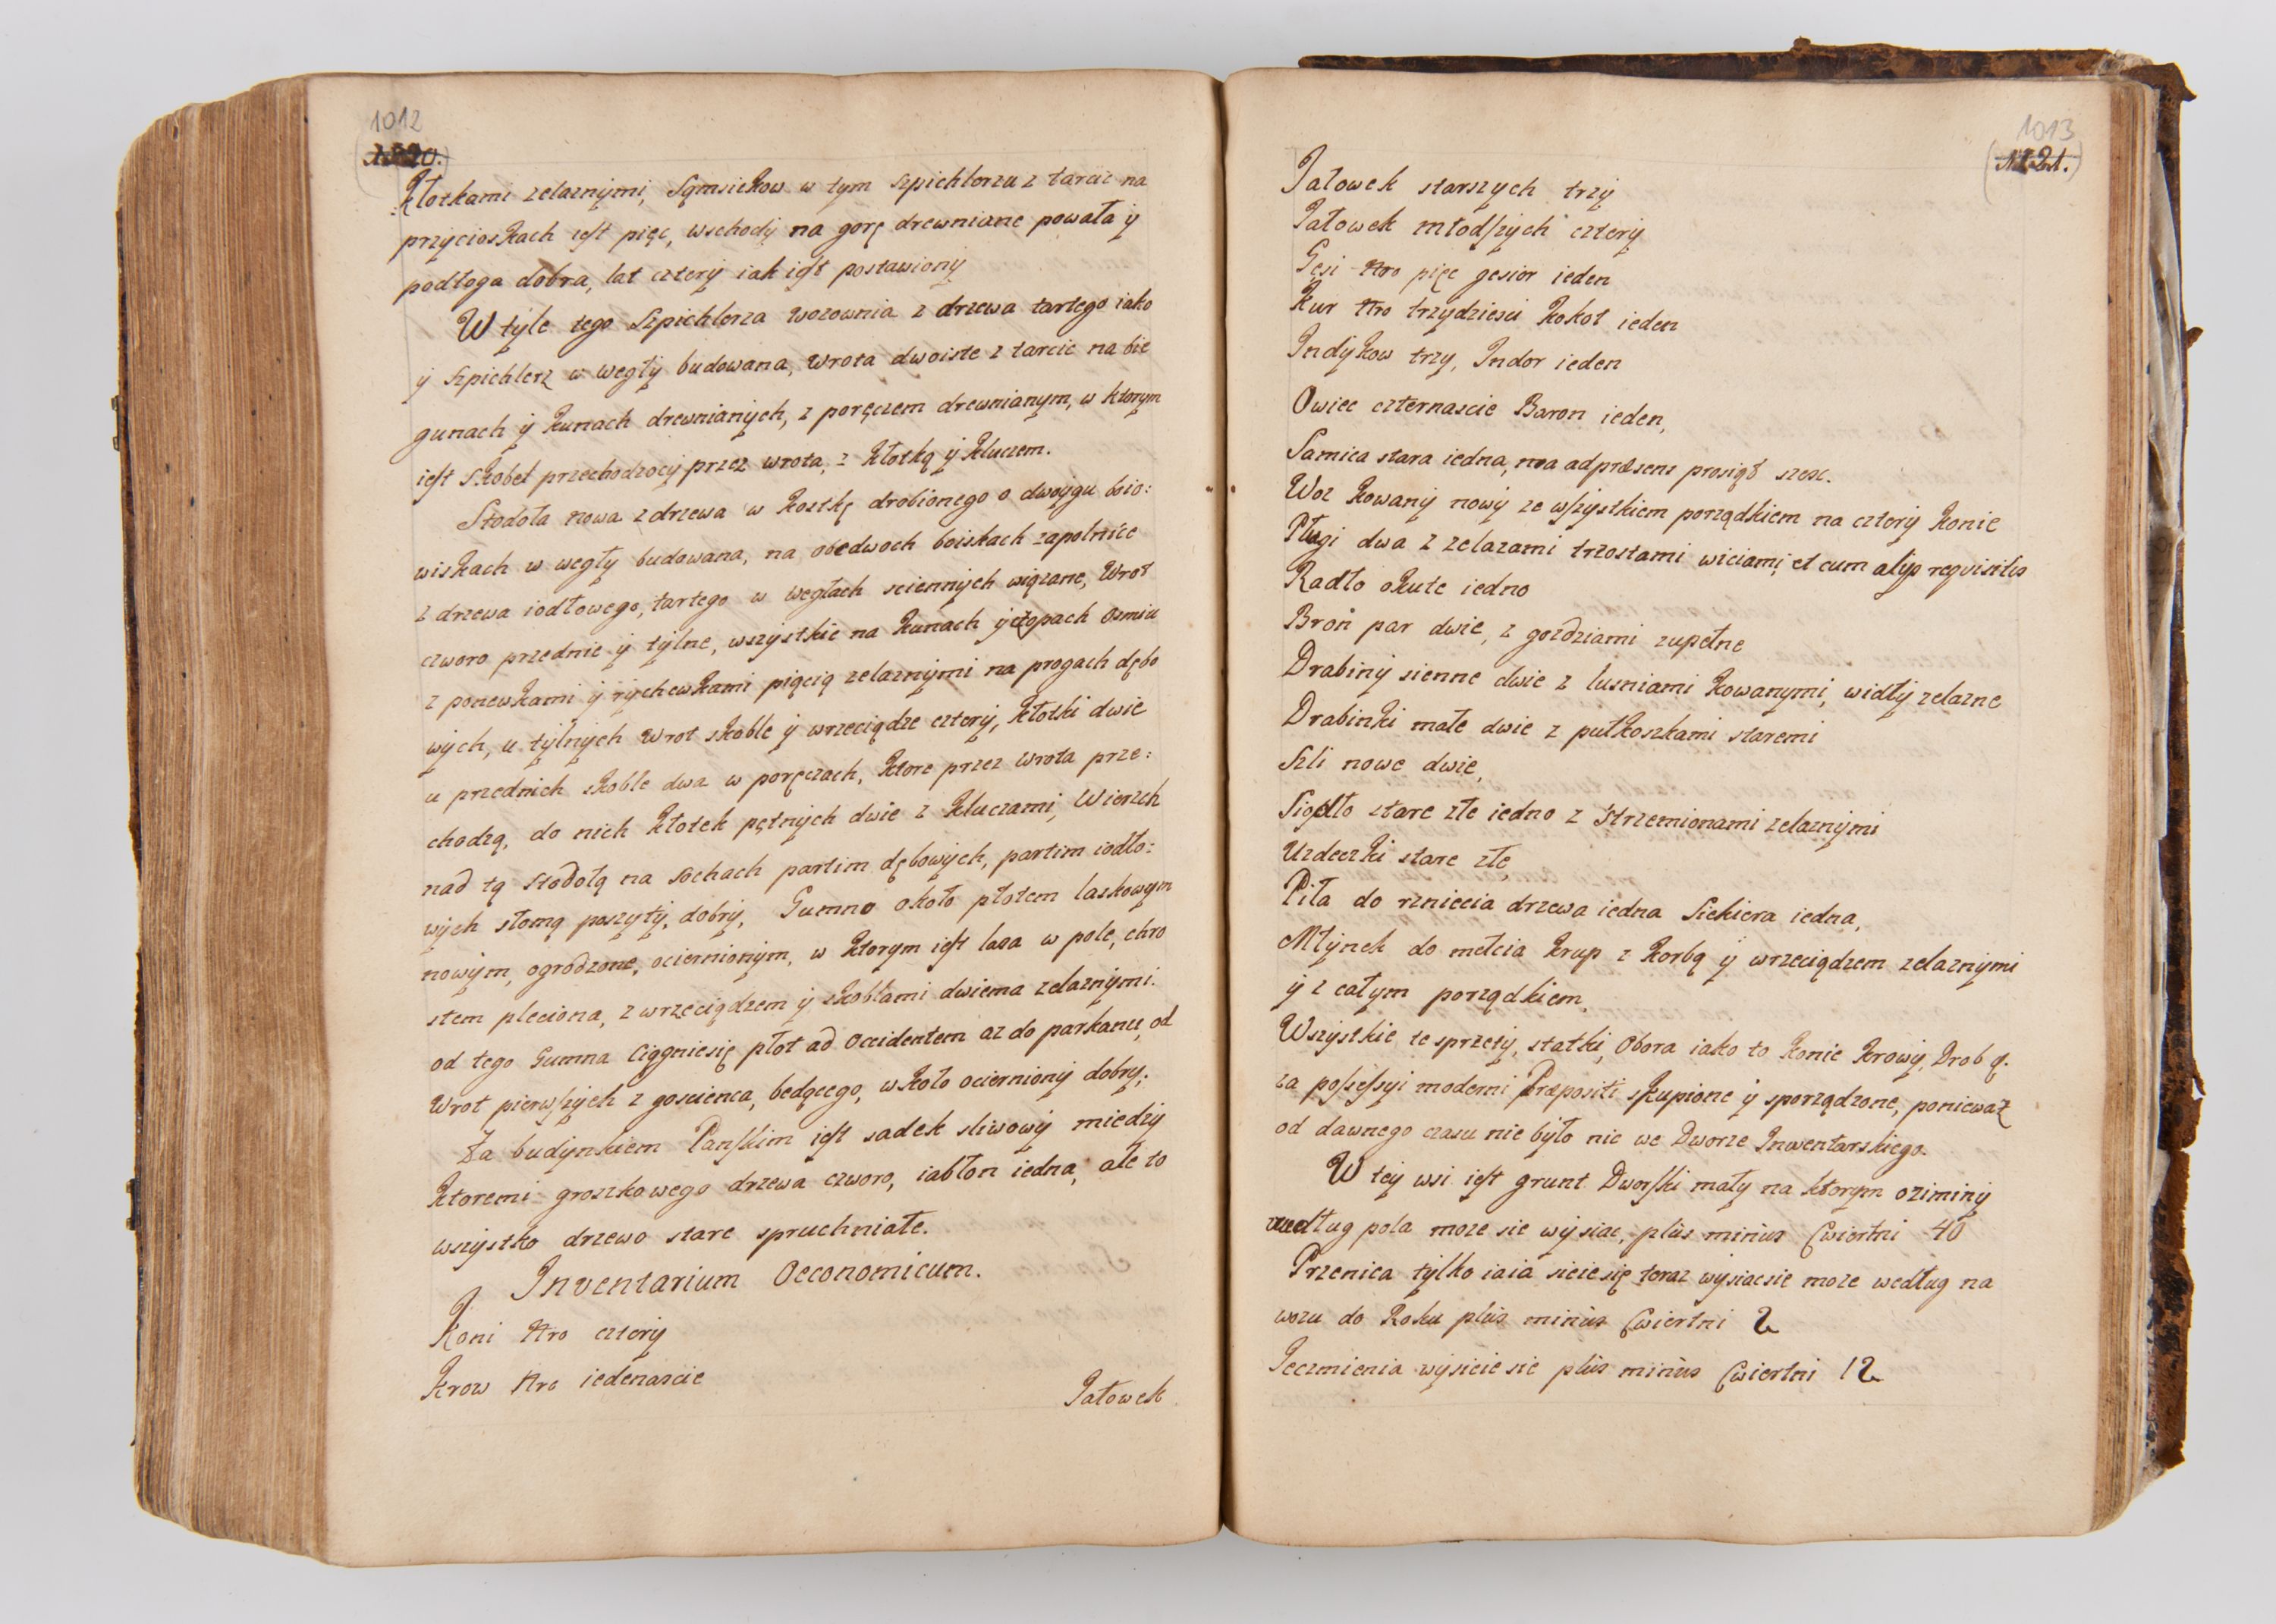 1012
Kłotkami zelaznymi, Sąmsiekow w tym szpichlerzu z tarcic na
przycioskach iest pięc, wschody na gorę drewniane powała y
podłoga dobra, lat cztery iak iest postawiony
W tyle tego Szpichlerza wozownia z drzewa tartego iako
y szpichlerz w węgły budowana, wrota dwoiste z tarcic na bie
gunach y kunach drewnianych, z poręczem drewnianym, w ktorym
iest Skobel przechodzący przez wrota, z kłotką y kluczem.
Stodoła nowa z drzewa w kostkę drobionego o dwoygu boio:
wiskach w węgły budowana, na obedwoch boiskach zapolnice
z drzewa iodłowego, tartego w węgłach sciennych wiązane, wrot
czworo przednie y tylne, wszystkie na kunach y czopach osmiu
z ponewkami y rychewkami pięcią zelaznymi na progach dębo
wych, u tylnych wrot skoble y wrzeciądze cztery, kłotki dwie
u przednich skoble dwa w poręczach, ktore przez wrota prze:
chodzą, do nich kłotek pętnych dwie z kluczami, Wierzch
nad tą stodołą na sochach partim dębowych, partim iodło:
wych słomą poszyty, dobry, Gumno około płotem laskowym
nowym, ogrodzone, ociernionym, w ktorym iest lasa w pole, chro
stem pleciona, z wrzeciądzem y skoblami dwiema zelaznymi.
od tego Gumna ciągnie się płot ad occidentem az do parkanu, od
wrot pierwszych z goscienca, będącego, w koło ocierniony dobry;
Za budynkiem Panskim iest sadek sliwowy miedzy
ktoremi groszkowego drzewa czworo, iabłon iedna, ale to
wszystko drzewo stare spruchniałe.
Inventarium Oeconomicum.
Koni Nro cztery
Krow Nro iedenascie
Jałowek
1013
1121.
Jałowek starszych trzy
Jałowek młodszych cztery
Gęsi Nro pięc gesior ieden
Kur Nro trzydziesci Kokot ieden
Indykow trzy, Indor ieden
Owiec czternascie Baron ieden,
Samica stara iedna, ma ad præsens prosiąt szesc.
Woz kowany nowy ze wszystkiem porządkiem na cztery konie
Pługi dwa z zelazami trzosłami wiciami, et cum alijs reqvisitis
Radło okute iedno
Bron par dwie, z gozdziami zupełne
Drabiny sienne dwie z lusniami kowanymi, widły zelazne
Drabinki małe dwie z pułkoszkami staremi
Szli nowe dwie,
Siodło stare złe iedno z strzemionami zelaznymi
Uzdeczki stare złe,
Piła do rzniecia drzewa iedna Siekiera iedna,
Młynek do mełcia krup z korbą y wrzeciądzem zelaznymi
y z całym porządkiem
Wszystkie te sprzety, statki, Obora iako to Konie Krowy, Drob &.
za possessyi moderni Præpositi skupione y sporządzone, poniewaz
od dawnego czasu nie było nic we Dworze Inwentarskiego.
W tey wsi iest grunt Dworski mały na ktorym oziminy
według pola moze sie wysiac, plus minus Cwiertni 40
Przenica tylko iaia sieie się teraz wysiac sie moze według na
wozu do Roku plus minus Cwiertni 2
Jeczmienia wysieie sie plus minus Cwiertni 12